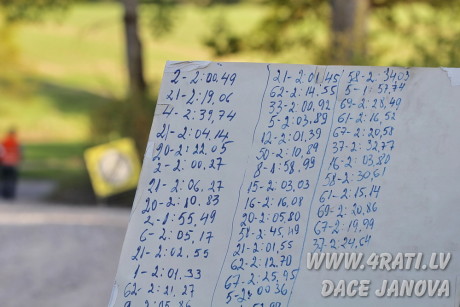 2-2:00,49
21-2:19,06
4-2:39,74
21-2:04,14
20-2:22,05
2-2:00,27
21-2:06,27
20-2:10,83
2-1:55,49
6-2:05,17
21-2:02,55
1-2:01,33
62-2:21,27
21-2:01,45
62-2:14,55
33-2:00,92
5-2:03,89
12-2:01,39
50-2:10,89
8-1:58,99
15-2:03,03
16-2:16,08
20-2:05,80
58-2:45,49
21-2:01,55
62-2:12,70
67-2:25,95
5-2:00,36
58-2:34,03
5-1:57,74
69-2:28,49
61-2:16,52
67-2:20,58
37-2:32,77
16-2:03,80
58-2:30,61
61-2:15,14
69-2:20,86
67-2:19,99
37-2:24,64
WWW.4RATI.LV
DACE JANOVA